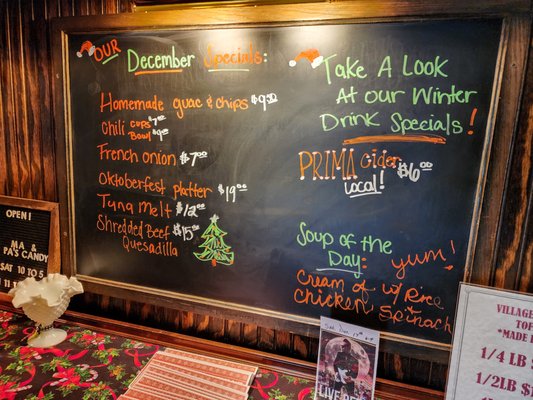 OUR December Specials:
Homemade guac & chips $9.50
Chili cups $7.00
Bowl $9.00
French onion $7.00
Oktoberfest platter $19.00
Tuna Melt $12.00
Shredded Beef $15.00
Quesadilla
Take A Look
At our Winter
Drink Specials!
PRIMA Cider $6.00
Local!
Soup of the
Day: yum!
Cream of w/ Rice
chicken & spinach
OPEN
MA &
PA'S CANDY
SAT 10 to
VILLAGE
*MADE
1/4 LB
1/2LB
LIVE